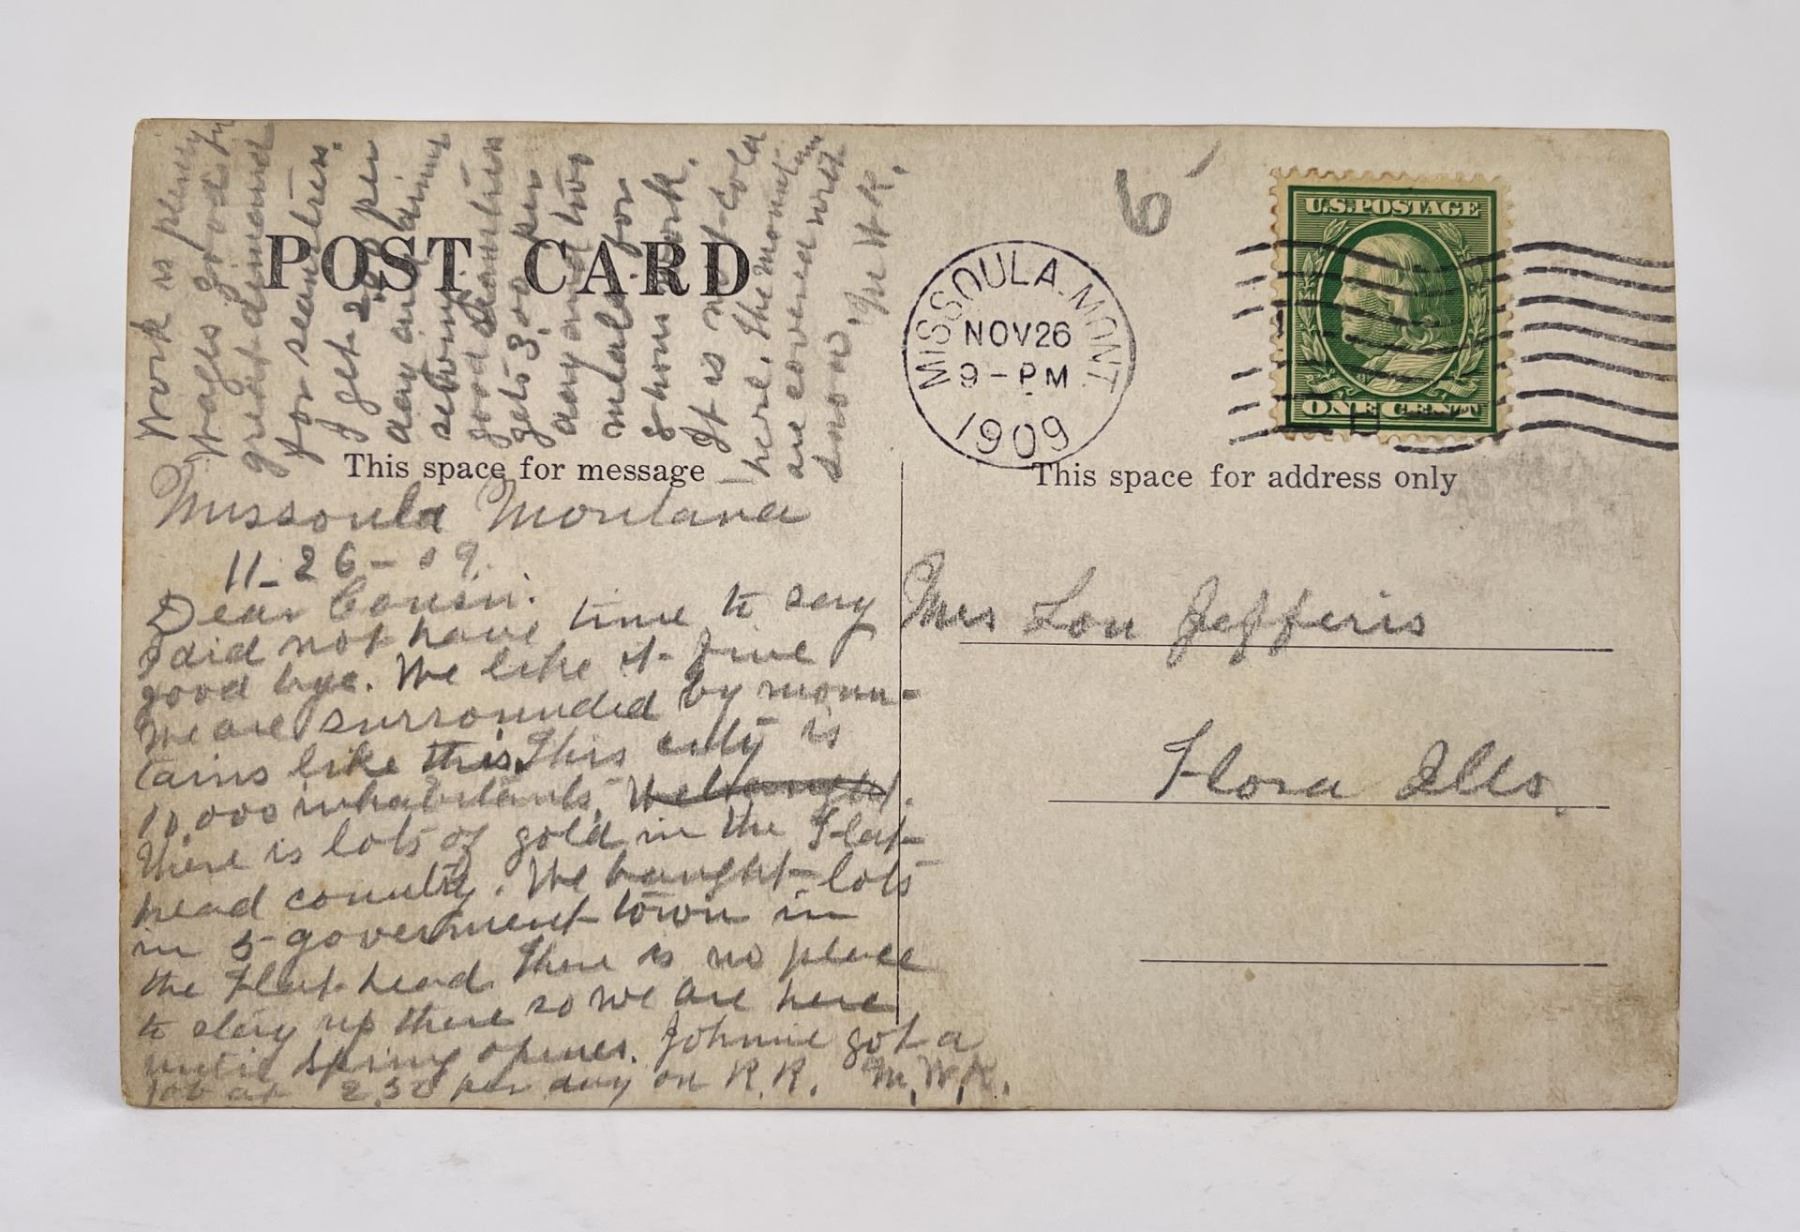 POST CARD
This space for message
This space for address only
MISSOULA, MONT.
NOV 26
9 - PM
1909
U.S. POSTAGE
ONE CENT
6
Missoula Montana
11-26-09.
Dear Cousin:
I did not have time to say
good bye. We like it fine
We are surrounded by moun-
tains like this. This city is
inhabitants. We bought.
There is lots of gold in the Flat-
head country. We bought lots
in 5 government town in
the Flat head There is no place
to stay up there so we are here
until spring opens. Johnnie got a
job at 2.50 per day on R.R. M.W.K.
Work is plenty
Wages good
great demand
for seamstress.
I get 2.00 per
day and
sewing.
good seamstress
gets 3.00 per
day and two
meals for
8 hours work.
It is not cold
here. The mountains
are covered with
snow. M W K.
Mrs Lou Jefferis
Flora Ills.